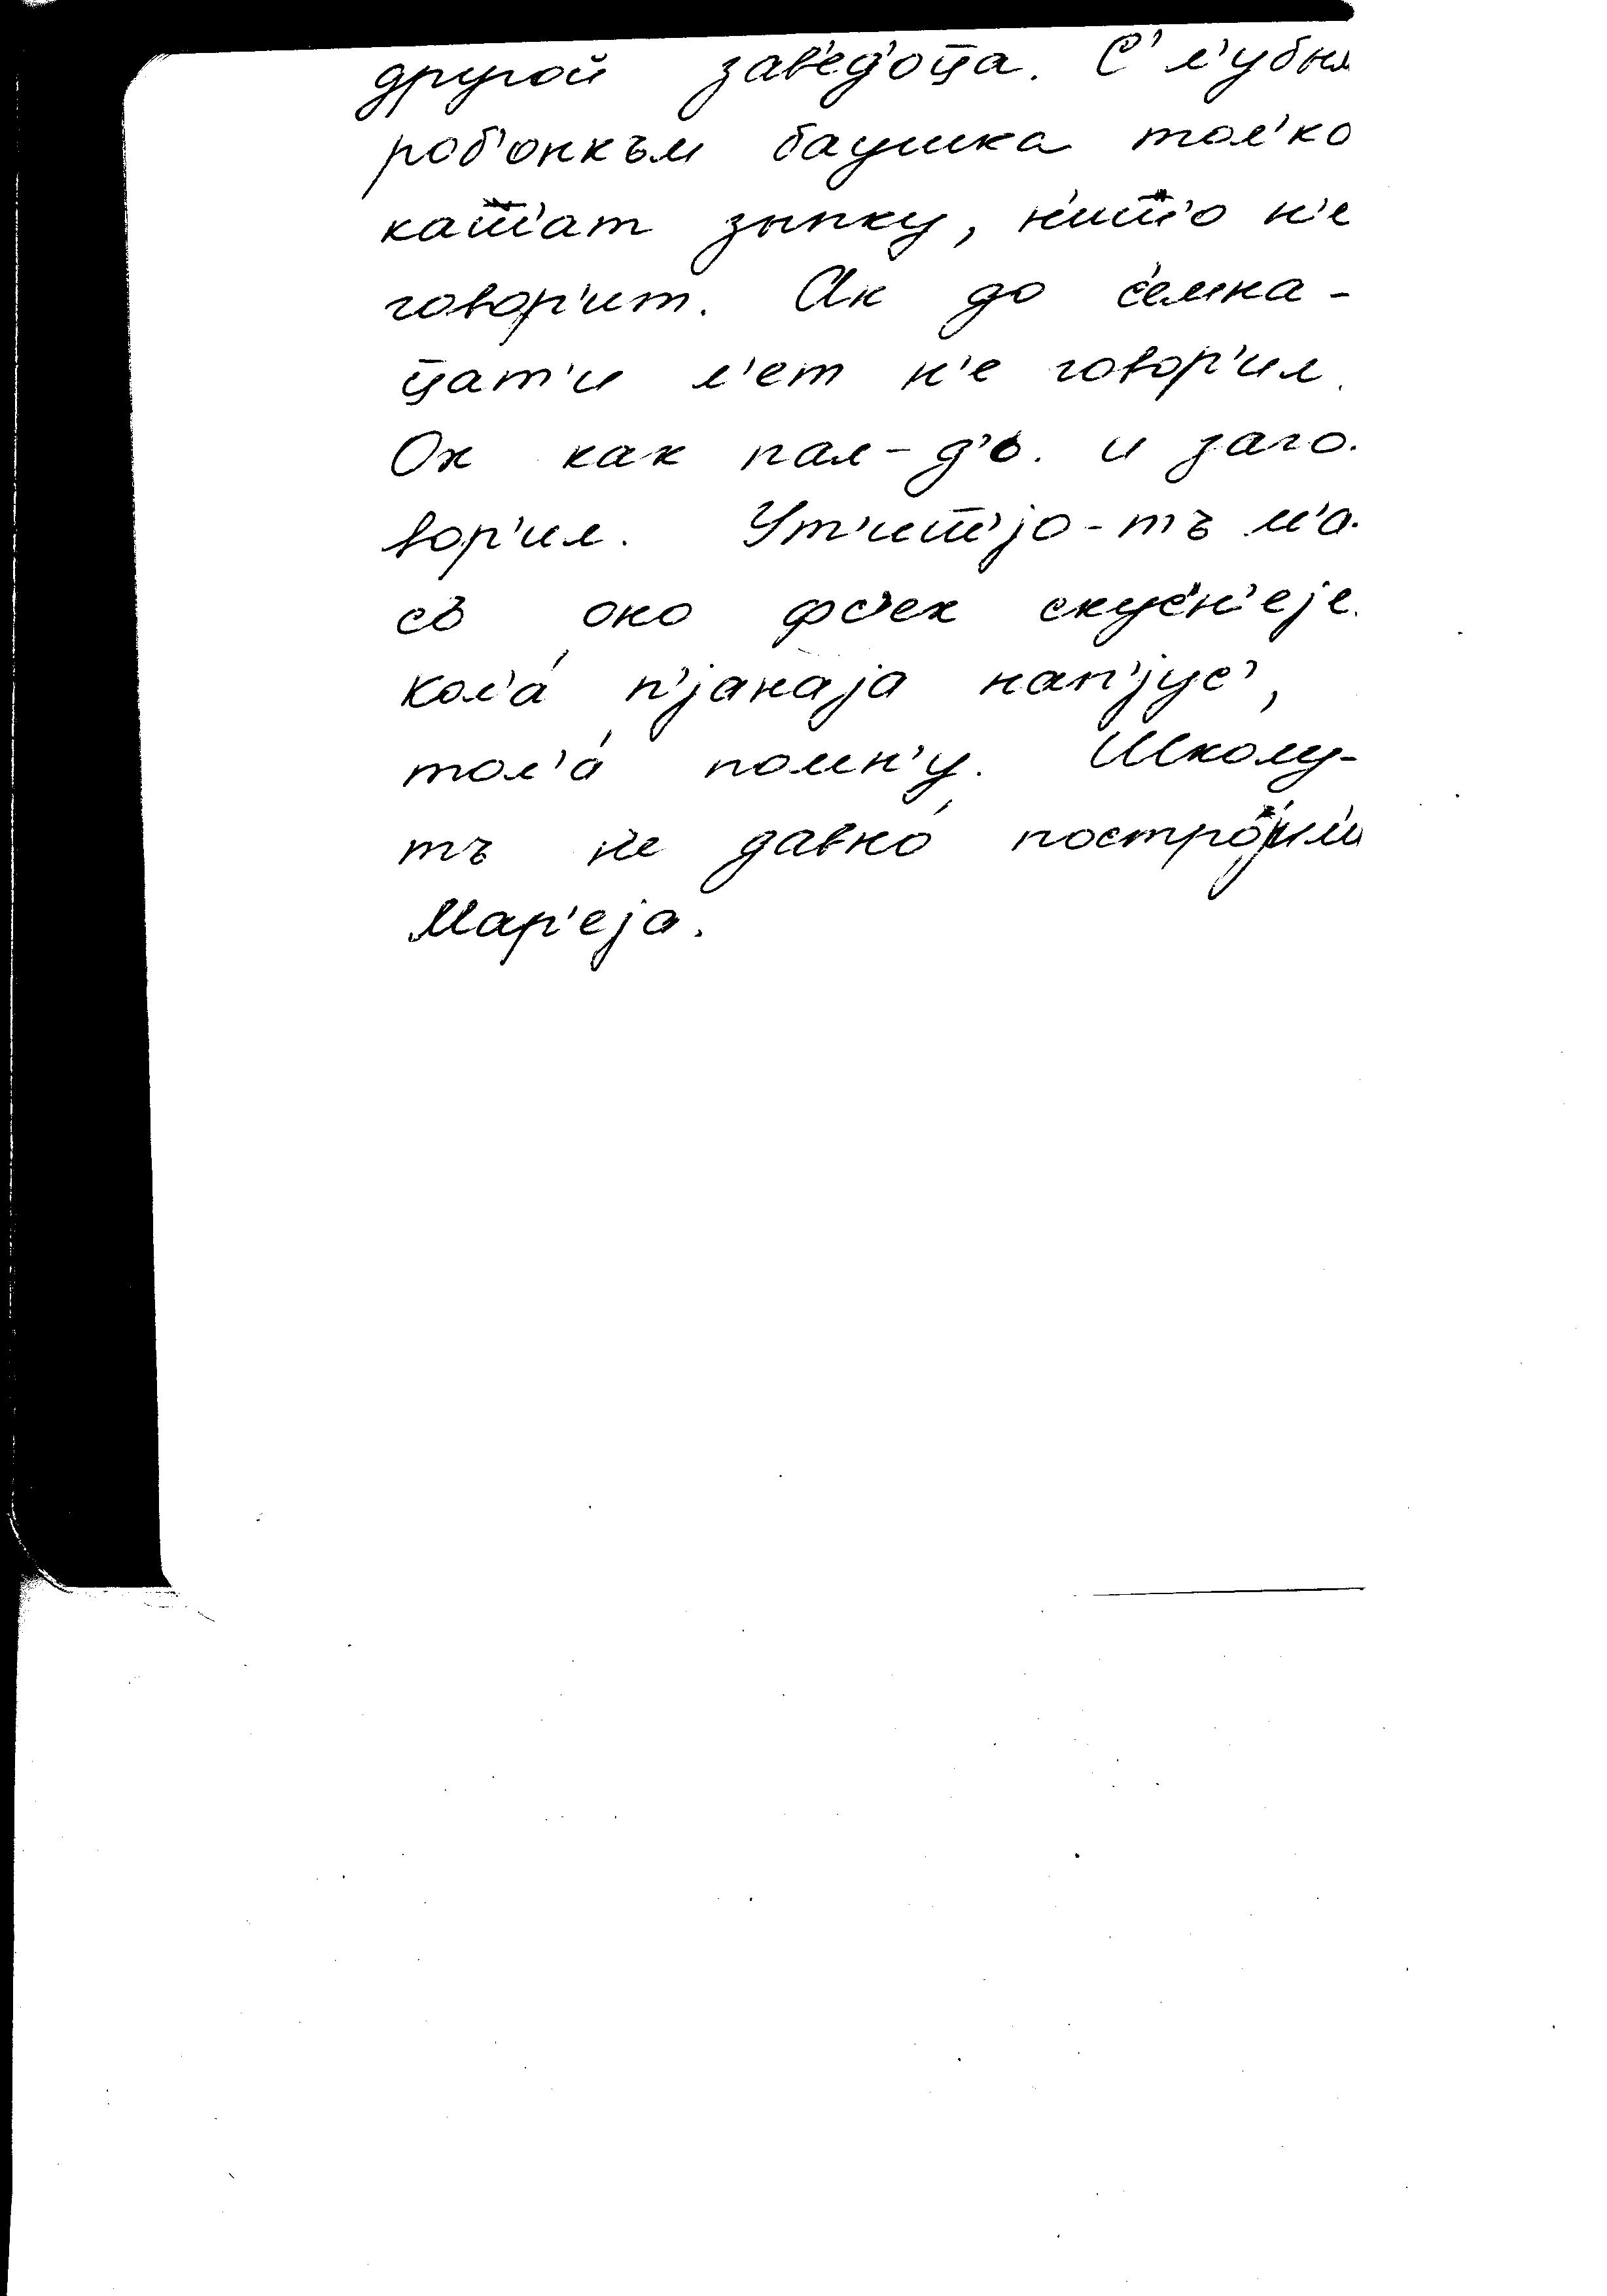 другой зав'ед'оц̄а. С' л'убым
роб'онкъм баушка тол'ко
кат̄ш'ат зыпку, н'ит̄ш'о н'е
говор'ит. Ак до с'емна-
ц̄ат'и л'ет н'е говор'ил.
Он как пал-д'о. и заго-
вор'ил. Ут'ит̄ш'jо-тъ м'а-
съ оно фс'ех скусн'еjе.
Кол'а́ п'jанаjа нап'jус',
тол'а́ помн'у. Школу-
тъ н'е давно́ постро́jил'и
Мар'еjа.